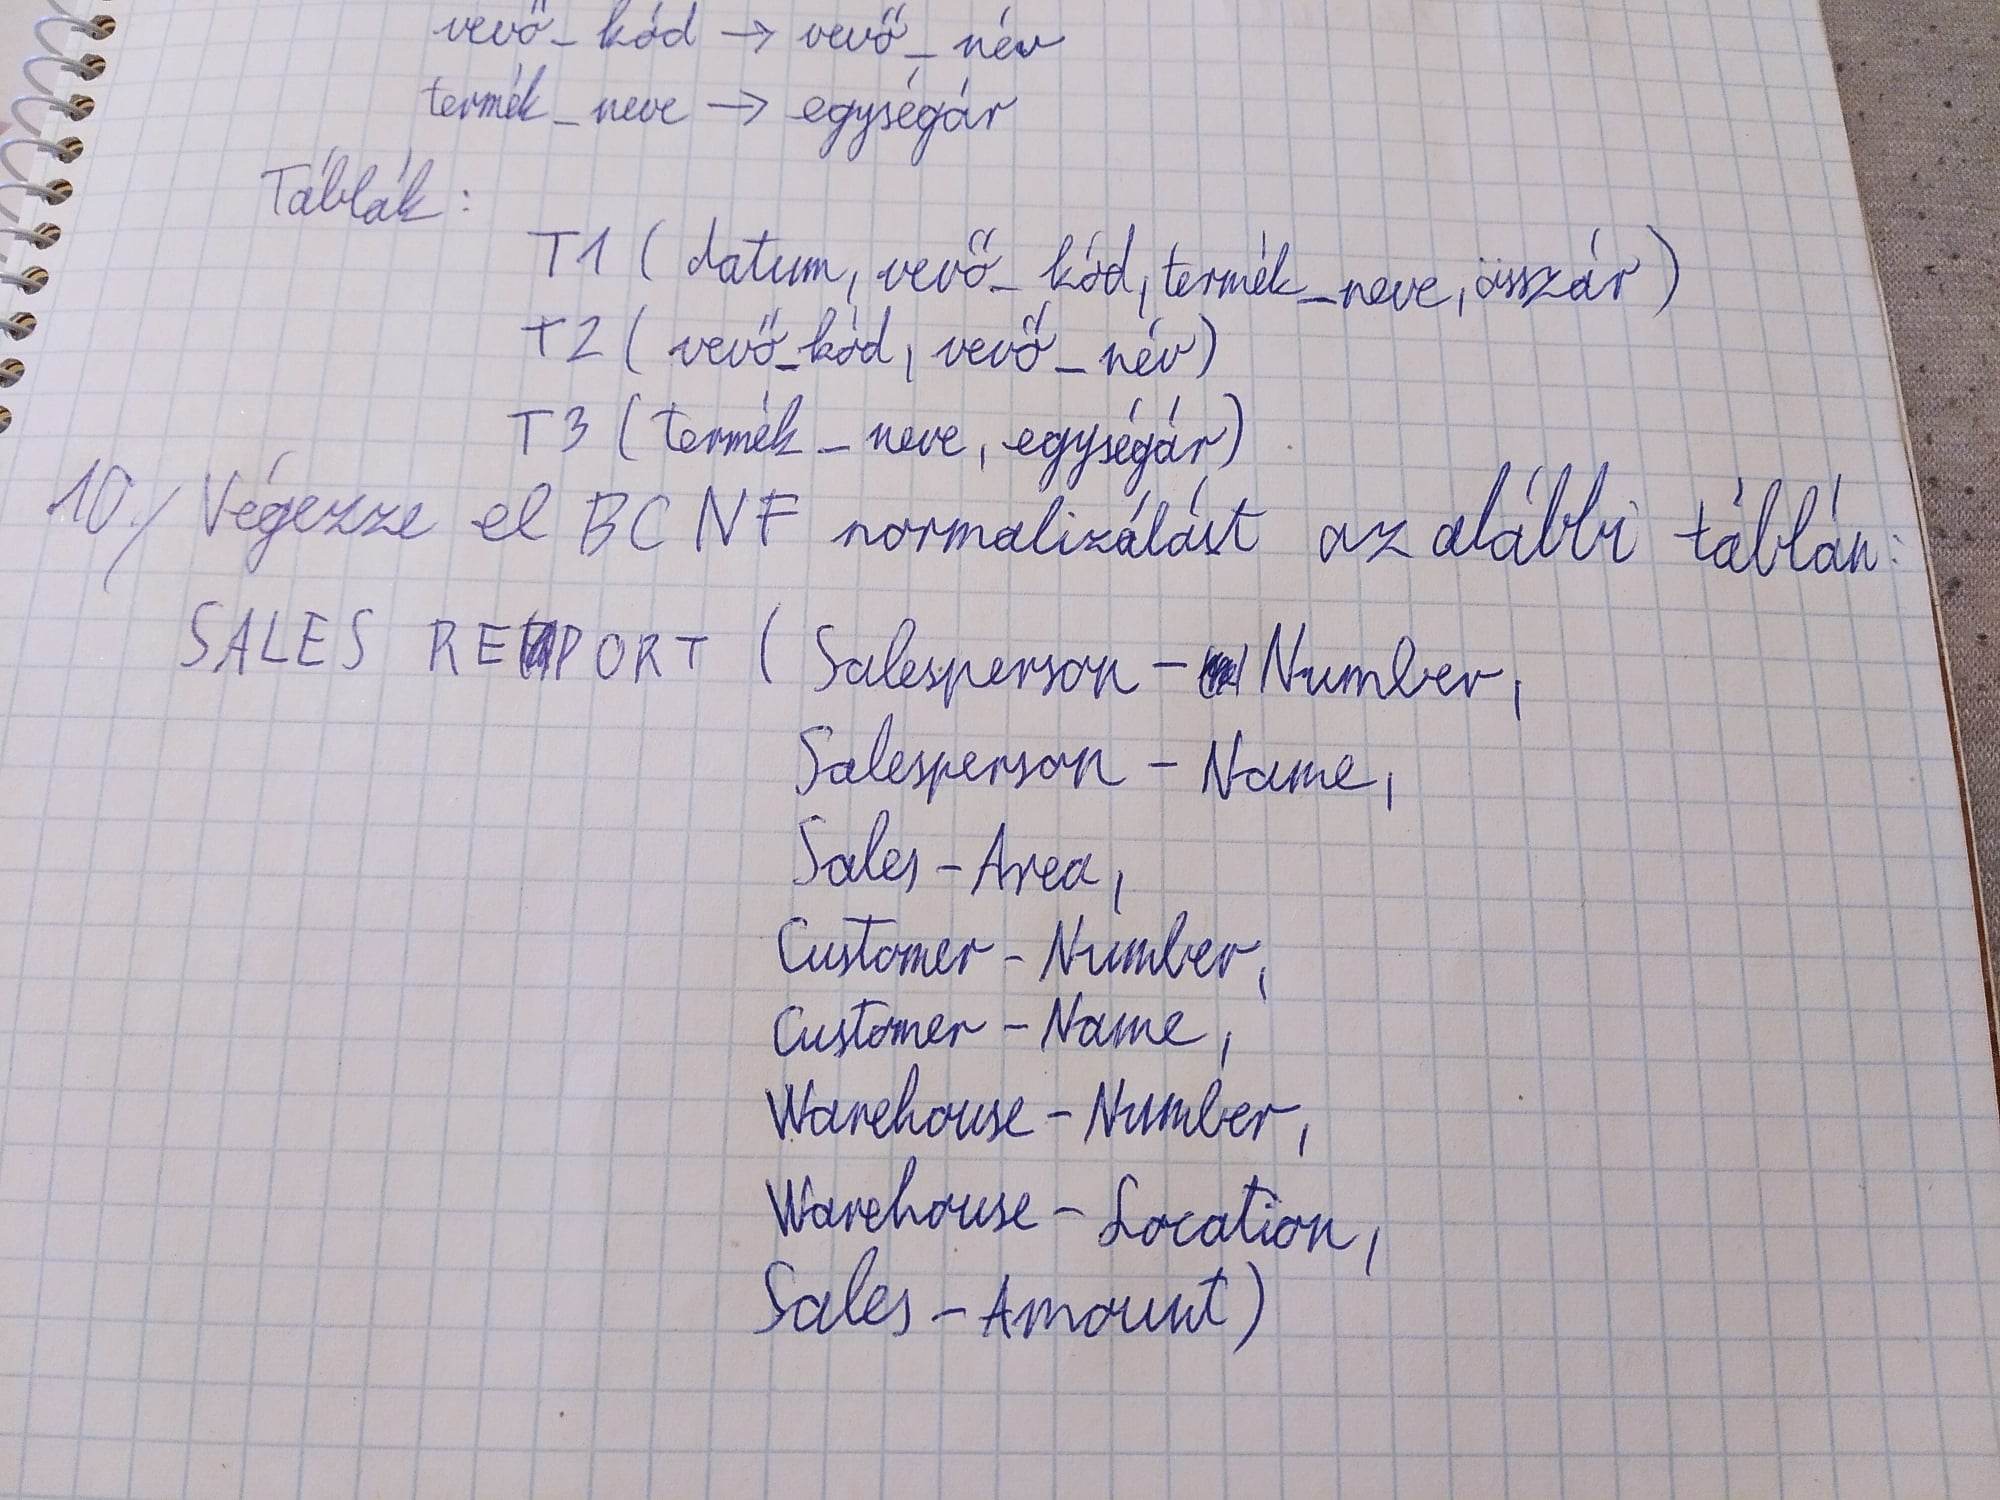 vevő_kód → vevő_név
termék_neve → egységár
Táblák:
T1 (datum, vevő_kód, termék_neve, összár)
T2 (vevő_kód, vevő_név)
T3 (termék_neve, egységár)
10./ Végezze el BCNF normalizálást az alábbi táblán:
SALES REPORT (Salesperson-Number,
Salesperson-Name,
Sales-Area,
Customer-Number,
Customer-Name,
Warehouse-Number,
Warehouse-Location,
Sales-Amount)